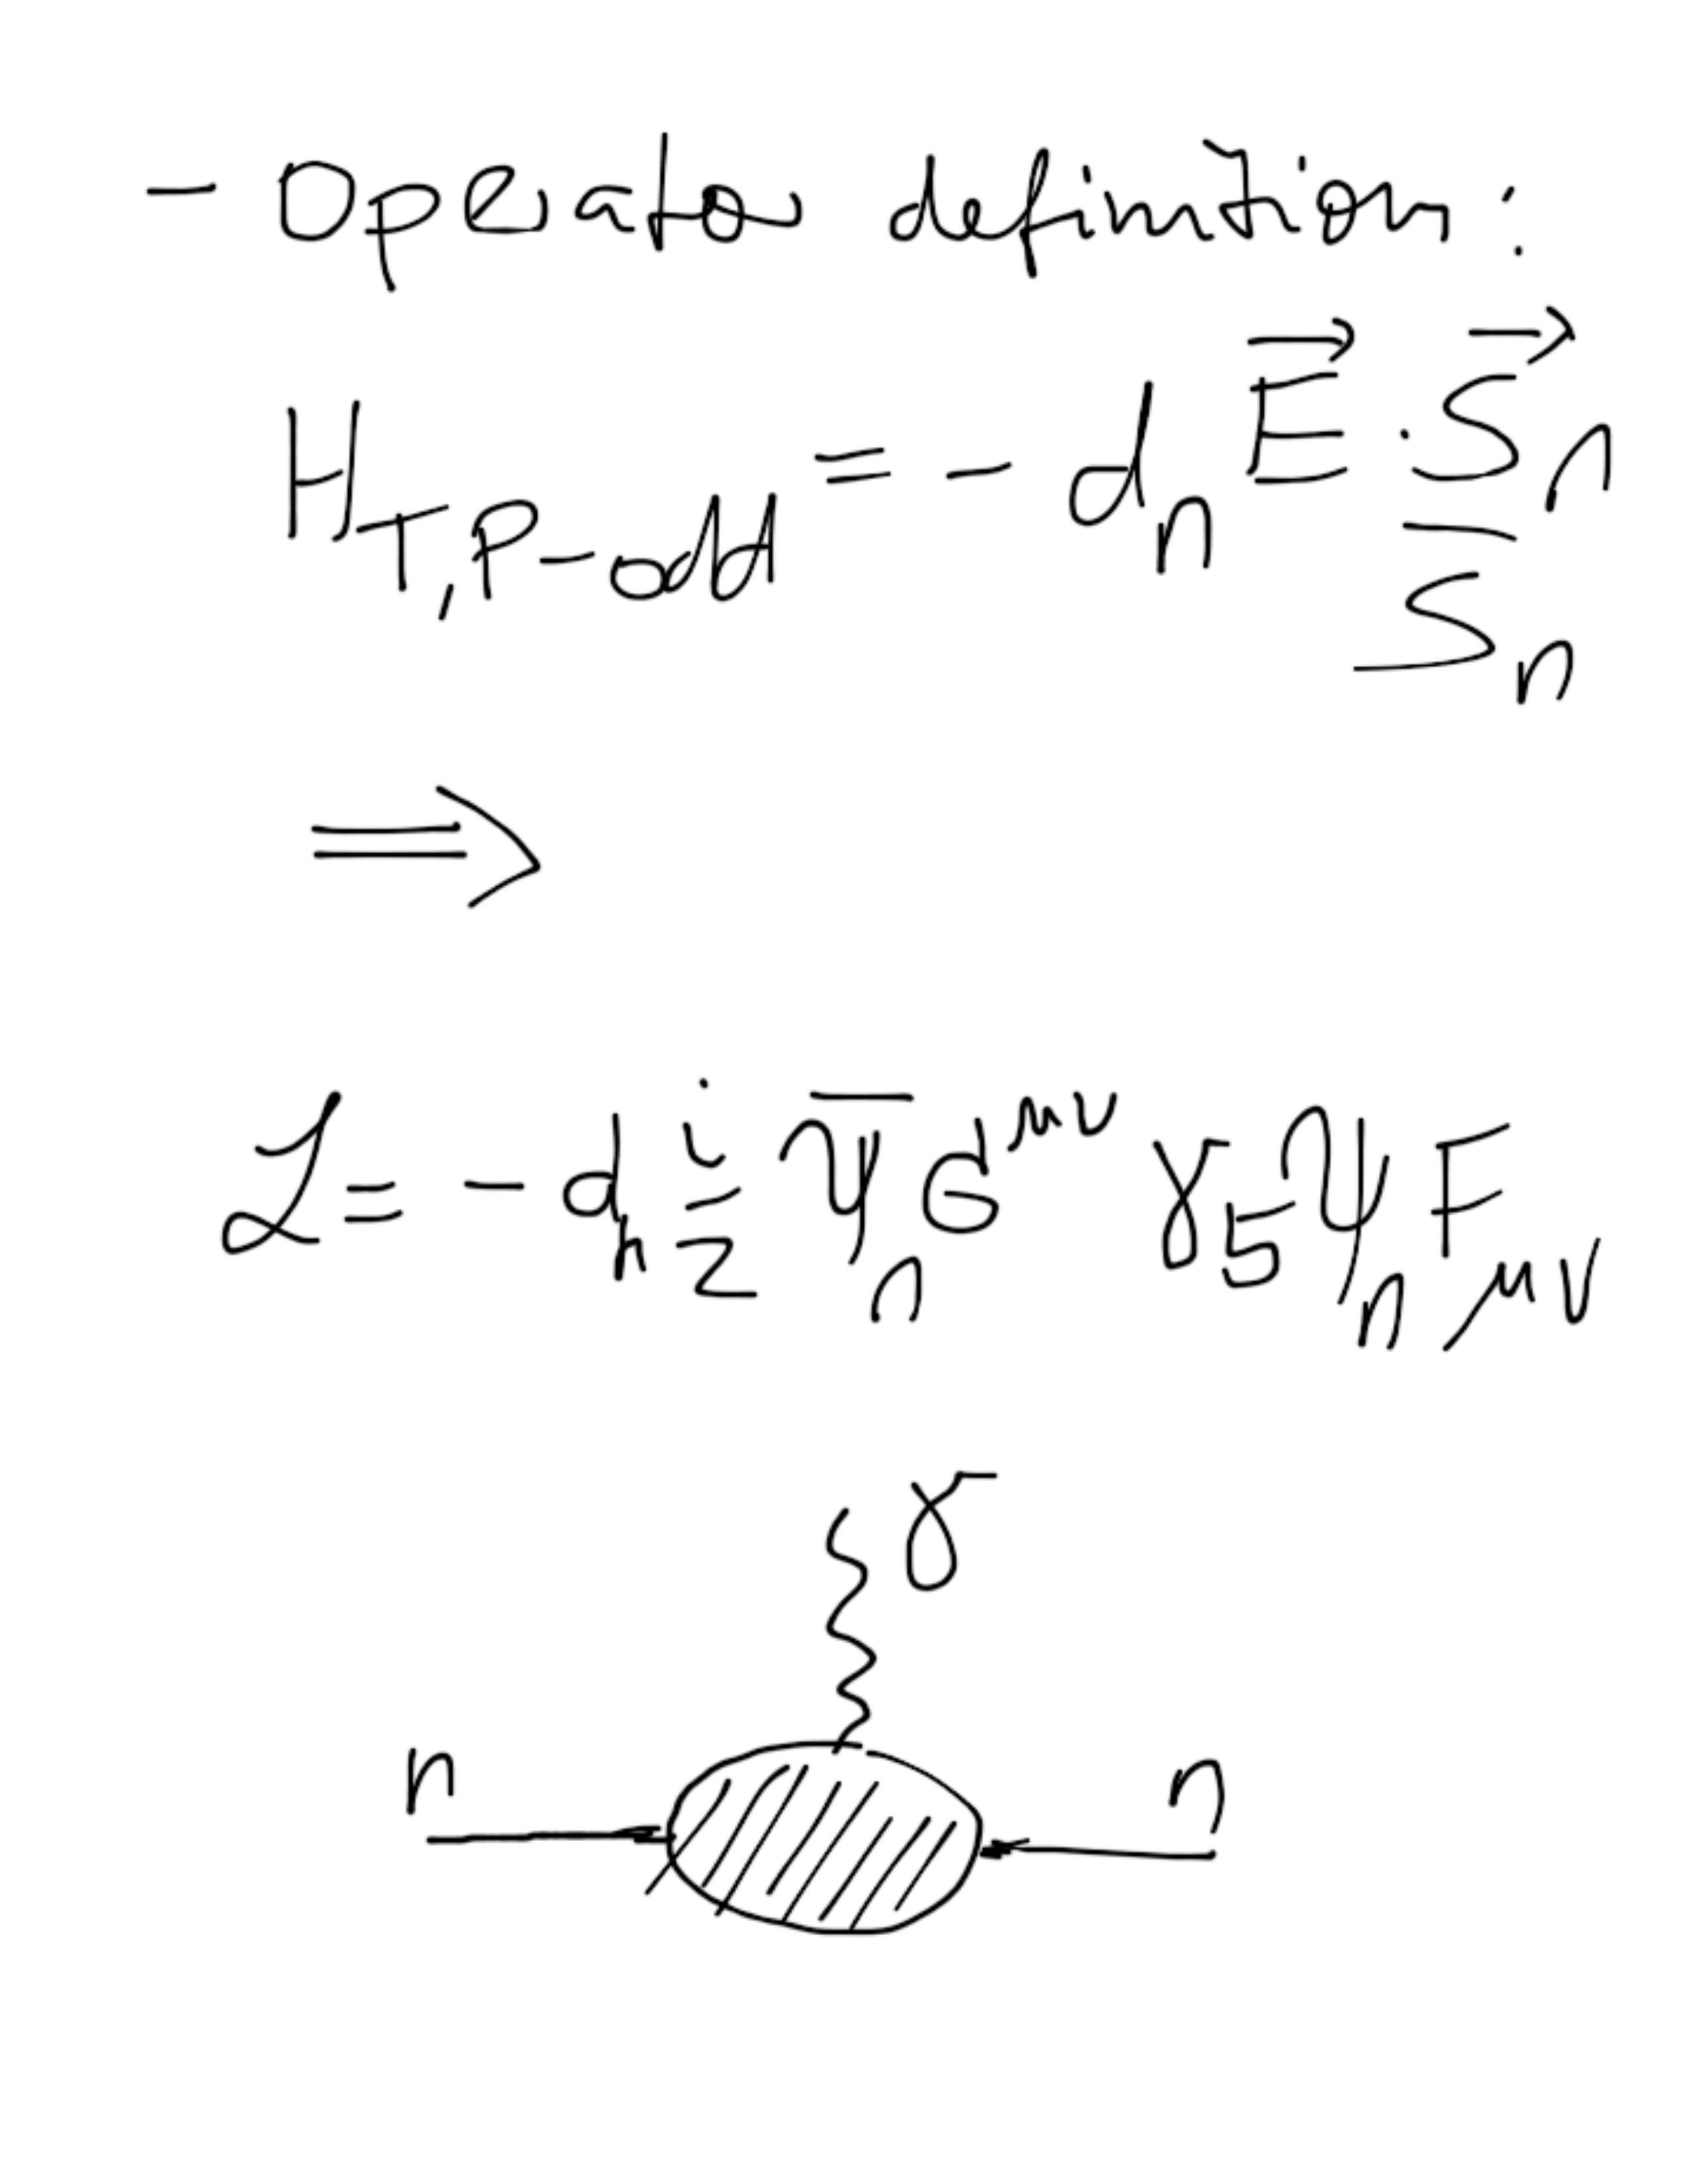 - Operator definition:
H_{T,P-odd} = - d_n \vec{E} \cdot \frac{\vec{S}_n}{S_n}
⟹
ℒ = - d_n \frac{i}{2} \overline{ψ}_n σ^{μν} γ_5 ψ_n F_{μν}
γ
n n